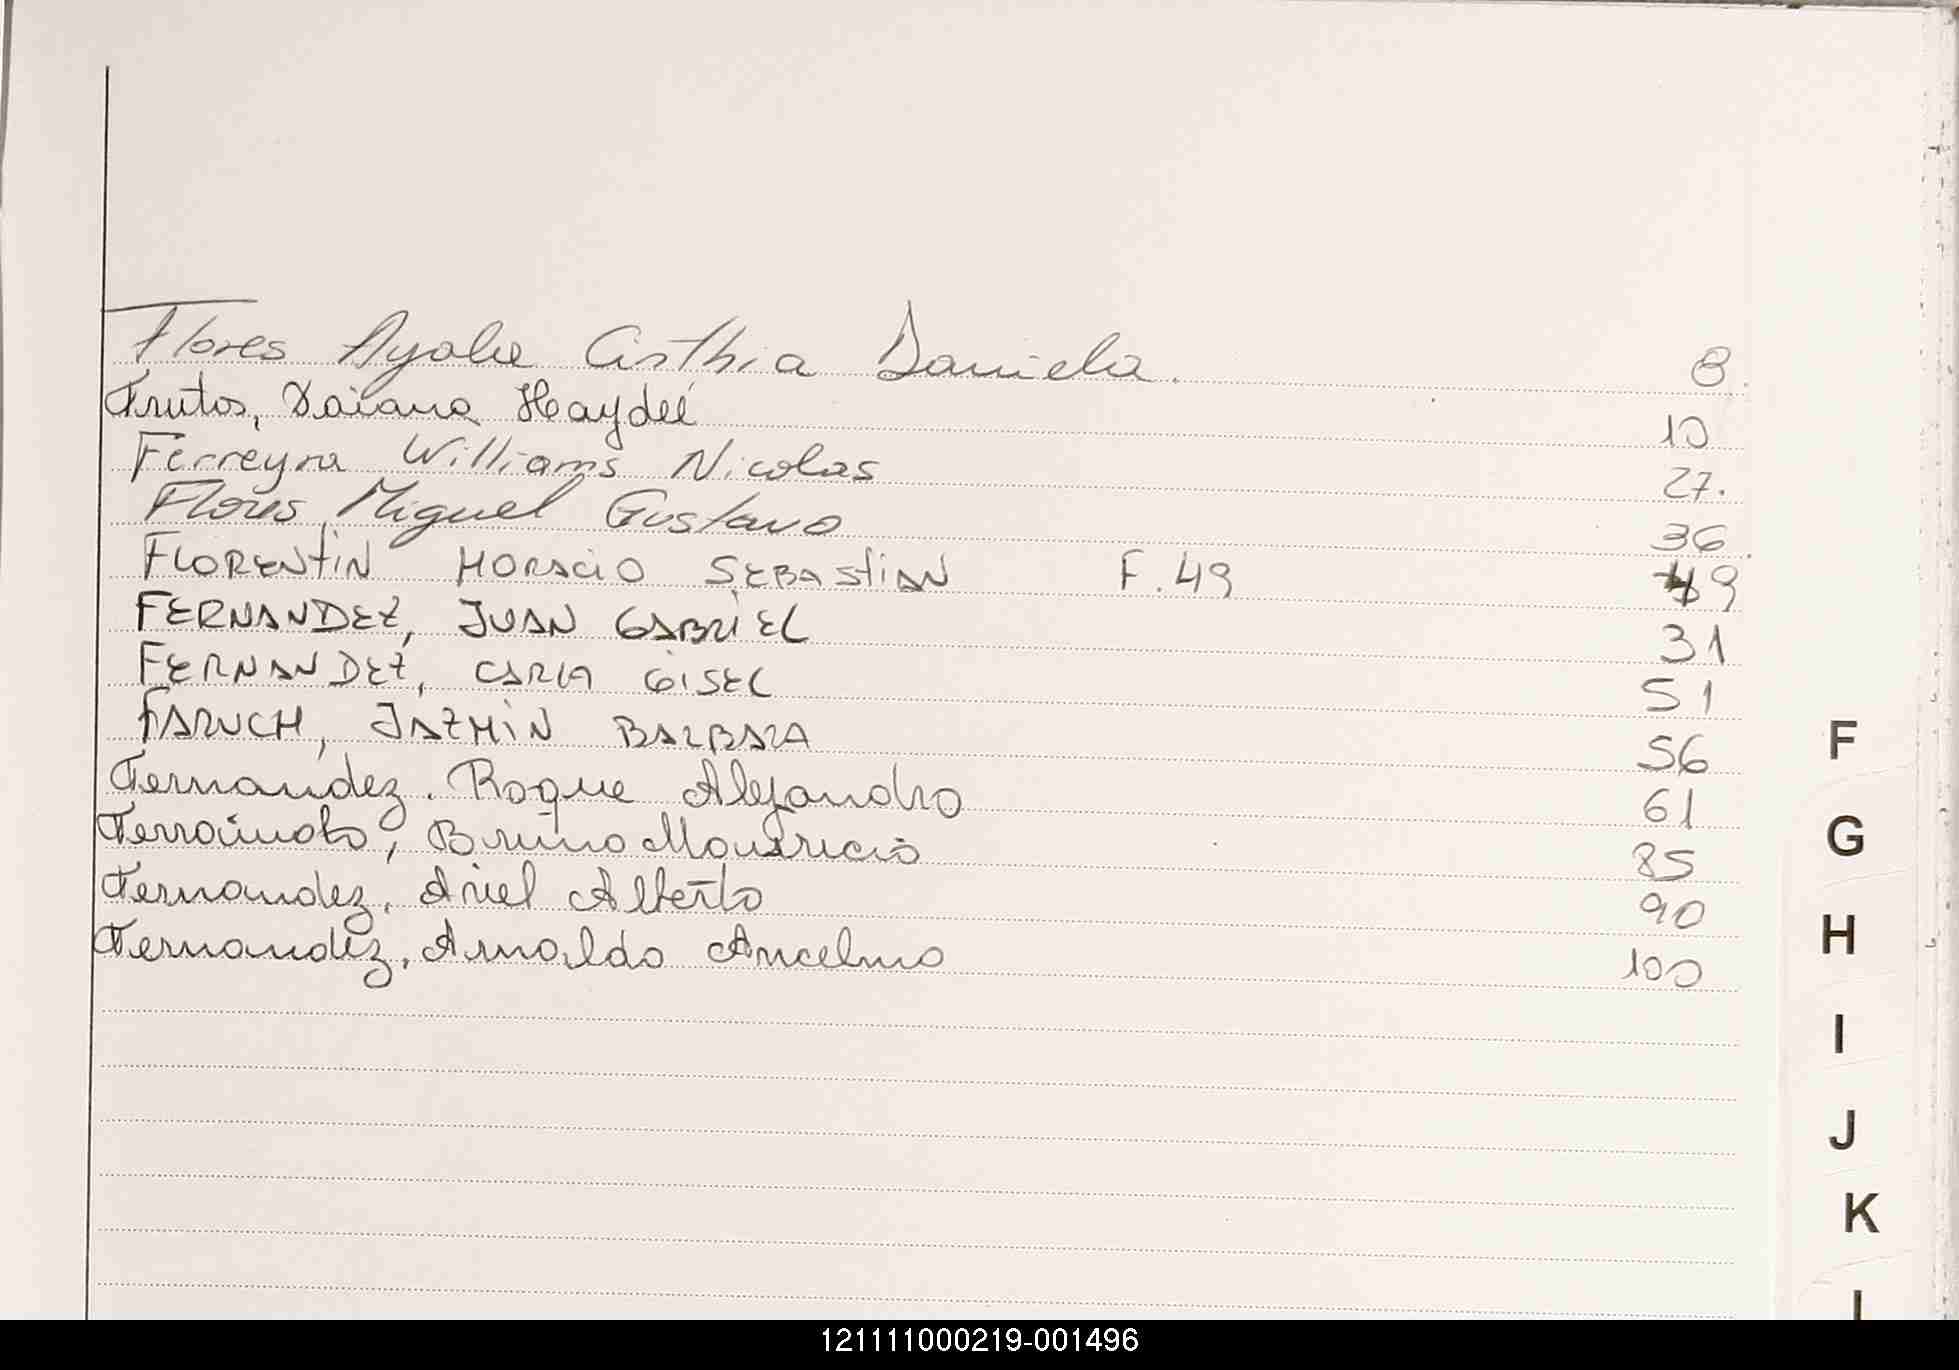 Flores Ayala Cinthia Daniela. 8.
Frutos, Daiana Haydeé 10
Ferreyra Williams Nicolas 27.
Flores, Miguel Gustavo 36.
FLORENTIN HORACIO SEBASTIAN F.49 49
FERNANDEZ, JUAN GABRIEL 31
FERNANDEZ, CARLA GISEL 51
FARUCH, JAZMIN BARBARA 56
F
Fernandez. Roque Alejandro 61
G
Bruno Mauricio 85
Fernandez, Ariel Alberto 90
H
Fernandez, Arnaldo Ancelmo 100
I
J
K
121111000219-001496